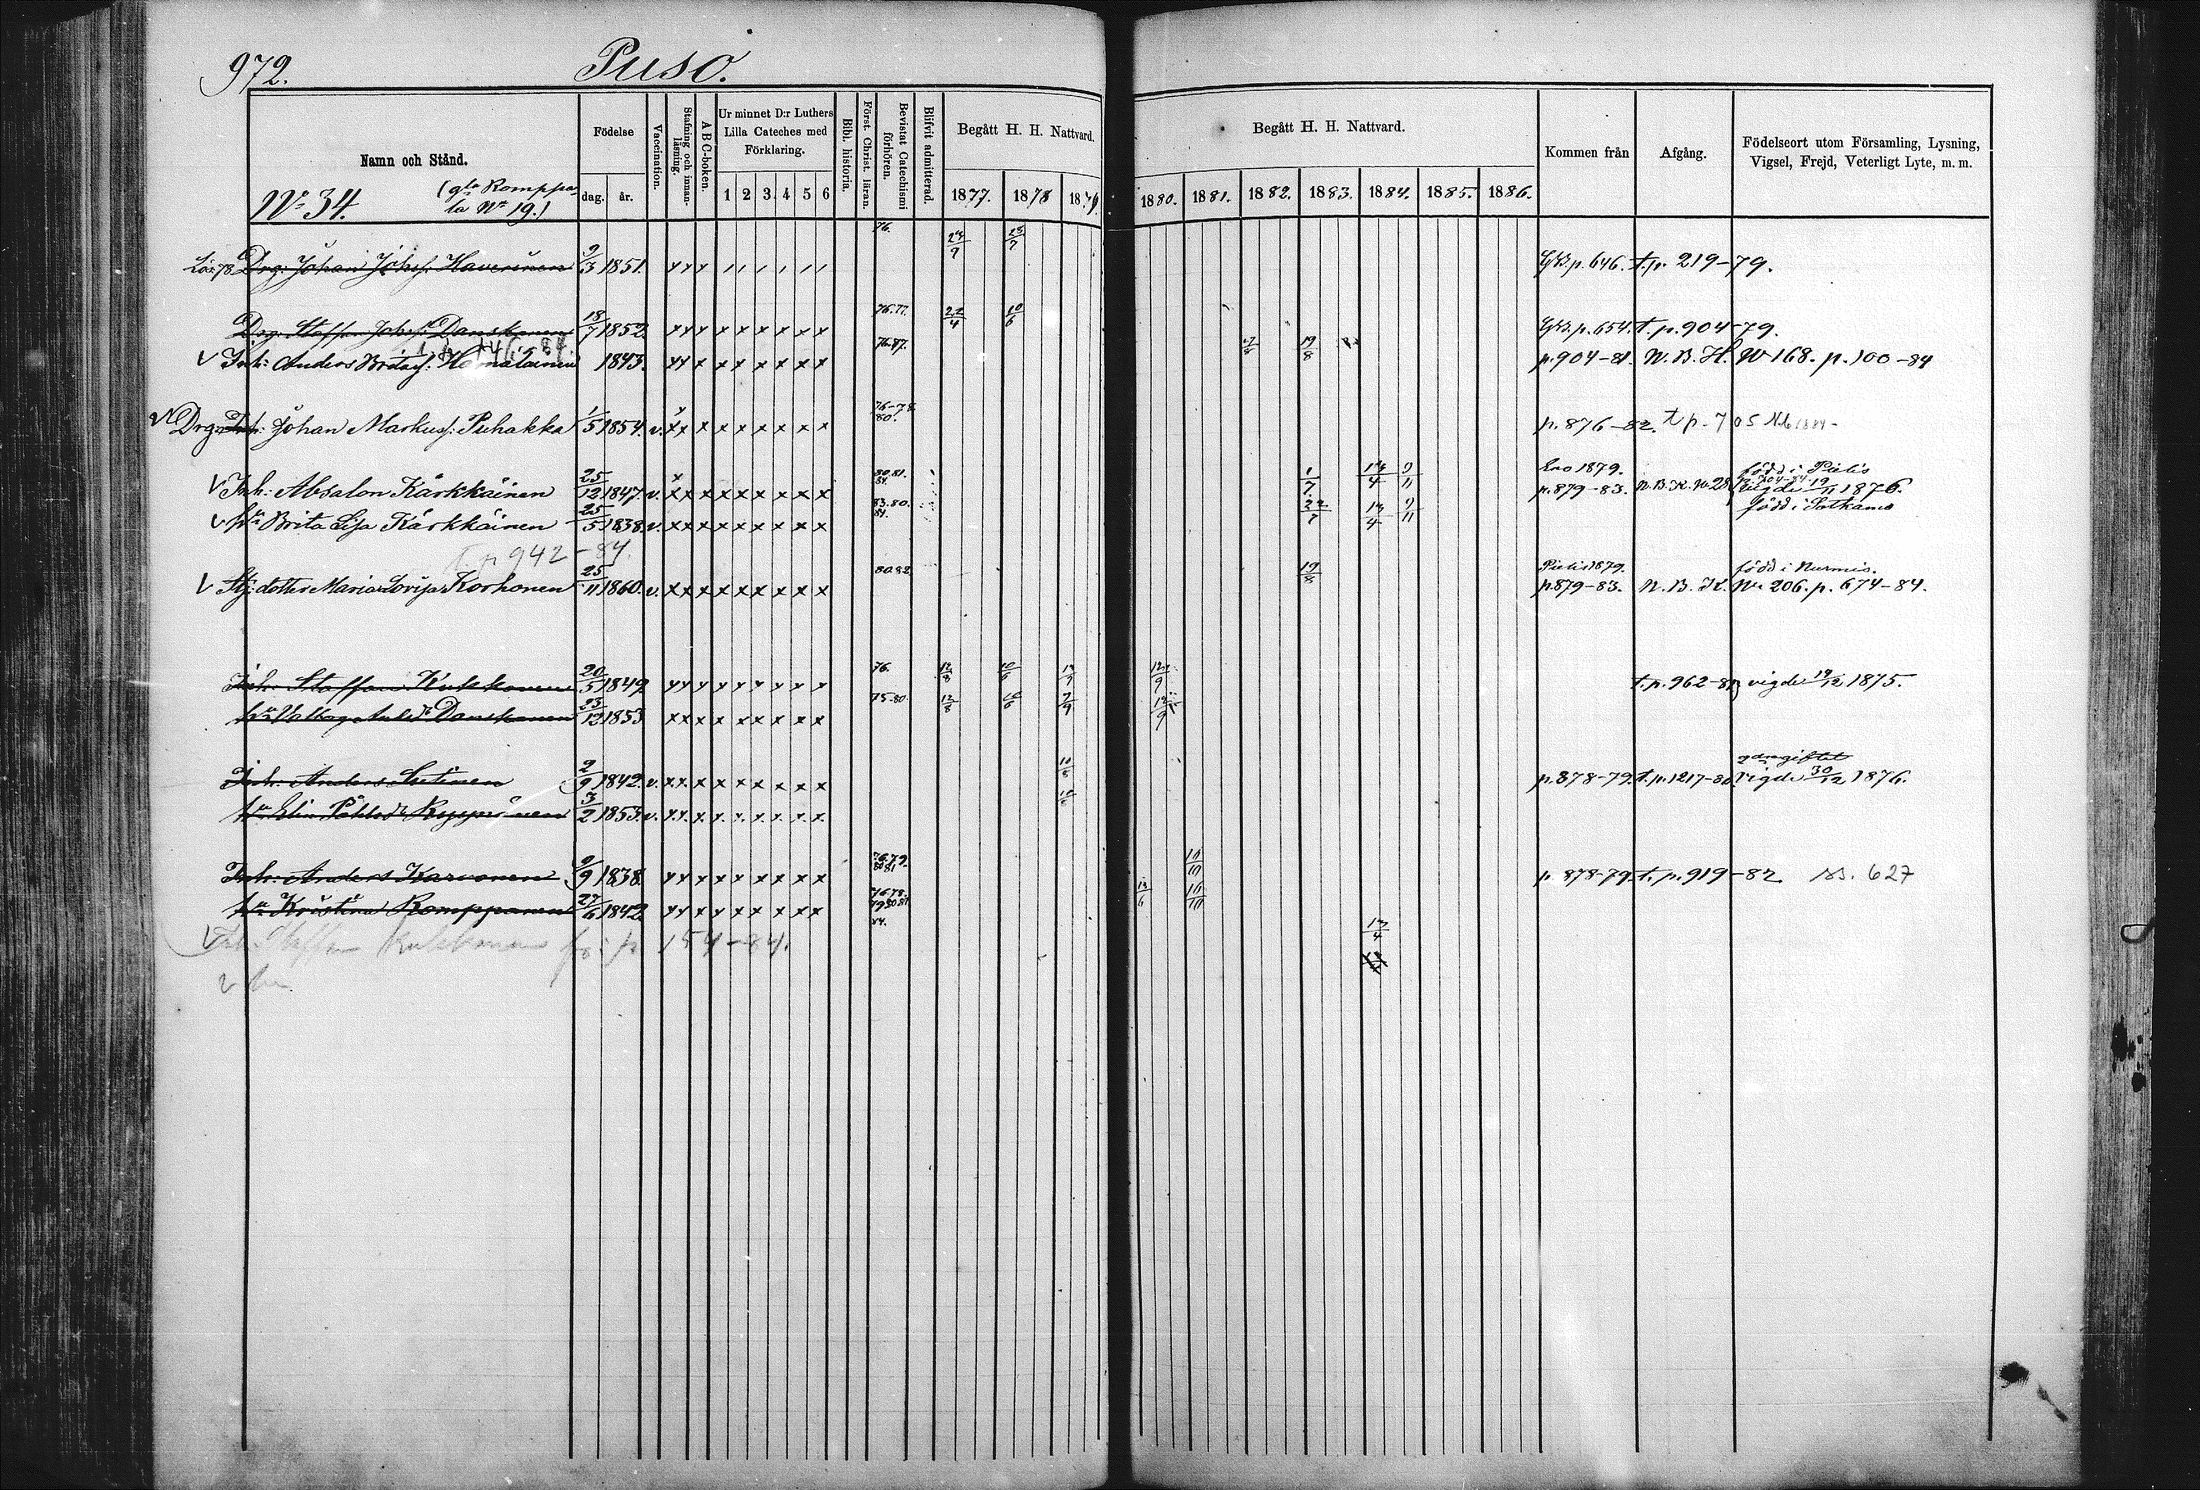 972. Puso.
Namn och Stånd. Födelse dag. år. Vaccination. Stafning och innanläsning. A B C-boken. Ur minnet D:r Luthers Lilla Cateches med Förklaring. 1 2 3 4 5 6 Bibl. historia. Först. Christ. läran. Bevistat Catechismi förhören. Blifvit admitterad. Begått H. H. Nattvard. 1877. 1878 1879.
Begått H. H. Nattvard. 1880. 1881. 1882. 1883. 1884. 1885. 1886. Kommen från Afgång. Födelseort utom Församling, Lysning, Vigsel, Frejd, Veterligt Lyte, m. m.
No 34. (gla Romppala No 19.)
Drg: Johan Johsf: Haverinen 9/3 1851. 76. 23/7 p. 646. t.p. 219-79.
Drg: Staff: Johsf: Danskanen 18/7 1852 76.77. 22/4 10/6 p. 654. t.p. 904-79.
V Inh: Anders 1843. 19/8 p. 904-81. N.B.H. No 168. p. 100-84
V Drg: Johan Markusf: Puhakka 1/5 1854. v. 76-78. 80. p. 876-82. t p. 705
V Inh: Absalon Kärkkäinen 25/12 1847. v. 80.81. 84. 1/7 13/4 9/11 Eno 1879. p. 879-83. född i Pielis vigde 19/11 1876.
V hu Brita Lisa Kärkkäinen 25/5 1838. v. 83.80. 84. 22/7 13/4 9/11 född i Sotkamo
t p 942-84
V Sty: dotter Maria Lovisa Korhonen 25/11 1860. v. 80.82 19/8 Pielis 1879. p. 879-83. N.B.K. No 206. p. 674-84. född i Nurmis.
Inh: Staffan Kukkonen 20/5 1849 76. 12/8 10/6 12/9 t.p. 962-81 vigde 19/12 1875.
hu Valborg Danskanen 23/12 1853 75-80. 12/8 10/6 7/9 12/9
Inh: Anders Sutinen 2/9 1842. v. 10/8 p. 878-79. t.p. 1217-80. vigde 30/12 1876.
hu Elin Påhlsdr Ryppönen 3/2 1853. v. 10/8
Inh: Anders Karvonen 9/9 1838. 76.79. 80 81 16/10 p. 878-79. t.p. 919-82 627
hu Kristina Romppanen 27/6 1842 13/6 16/10
V Inh. Staffan Kukkonen fr: p. 154-84. 13/4
v hu